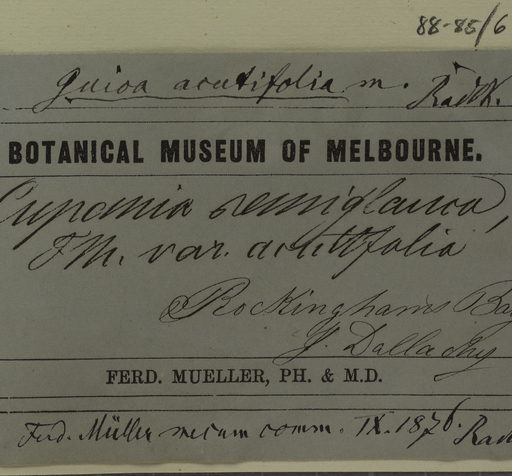 88-85/6
Guioa acutifolia m. Radlk.
BOTANICAL MUSEUM OF MELBOURNE.
Cupania semiglauca,
F.M. var. acutifolia
Rockinghams Bay
J. Dallachy
FERD. MUELLER, PH. & M.D.
Ferd. Müller mecum comm. IX. 1876. Radl